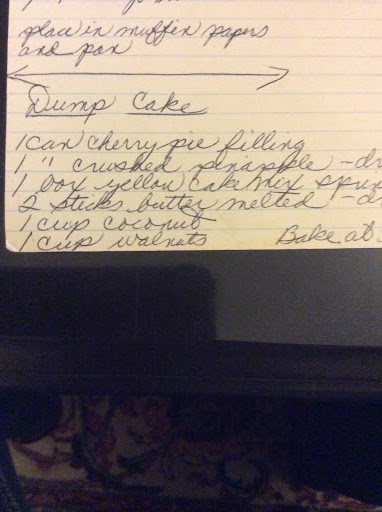 place in muffin papers
and pan
Dump Cake
1 can cherry pie filling
1 " crushed pinapple - dr
1 box yellow cake mix sprin
2 sticks butter melted - dr
1 cup coconut
1 cup walnuts Bake at